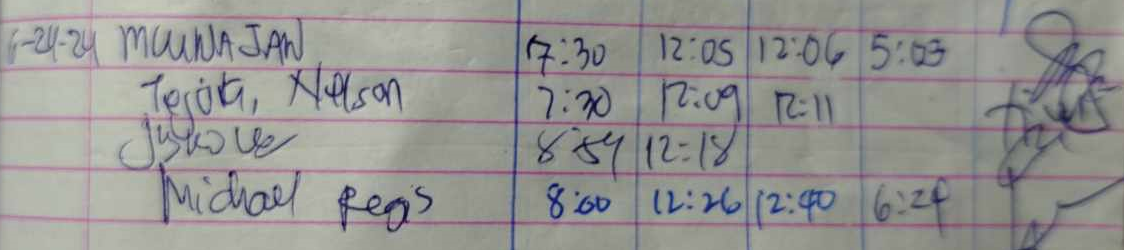 6-24-24 MCUNAJAN 7:30 12:05 12:06 5:03
Tejota, Nelson 7:30 12:09 12:11
8:54 12:18
Michael Regis 8:00 12:26 12:40 6:24